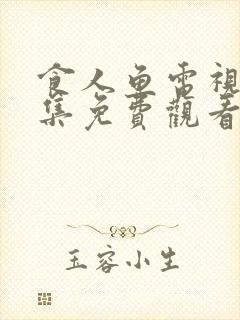 食人鱼電視
集免費觀看
玉容小生